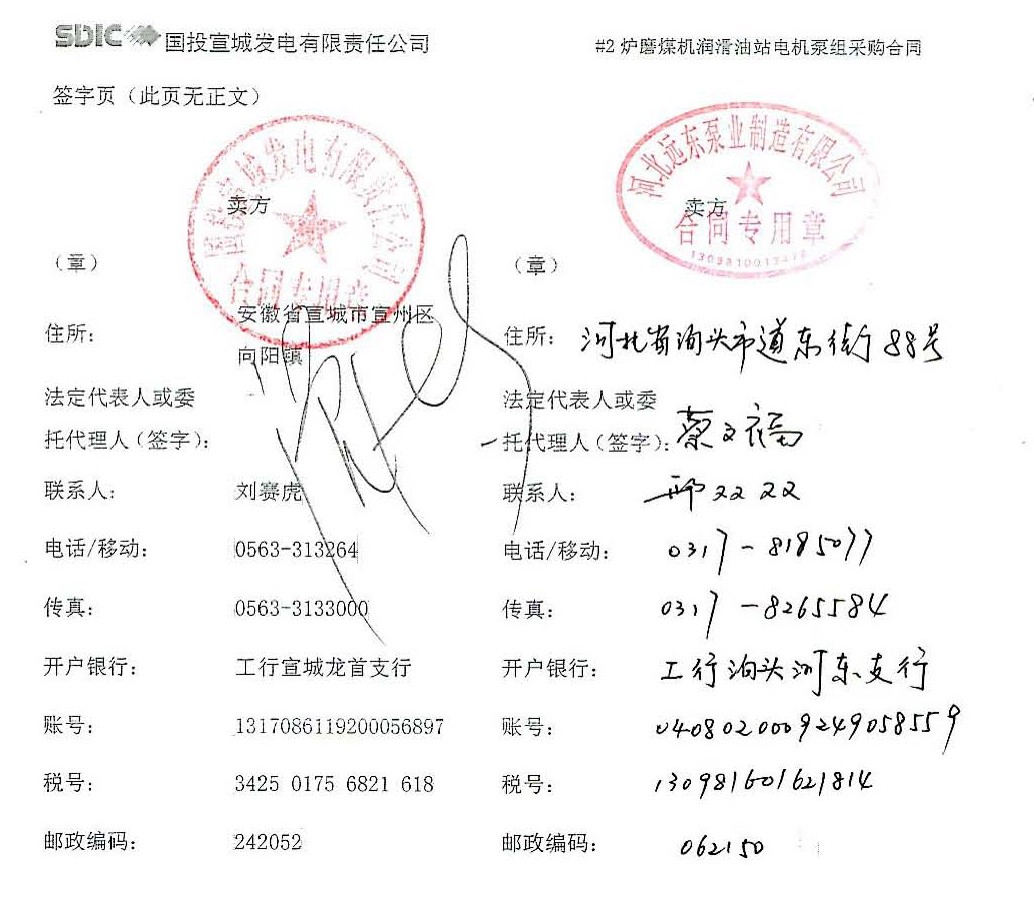 SDIC 国投宣城发电有限责任公司 #2 炉磨煤机润滑油站电机泵组采购合同
签字页（此页无正文）
国投宣城发电有限责任公司
合同专用章
河北远东泵业制造有限公司
合同专用章
卖方 卖方
（章） （章）
住所： 安徽省宣城市宣州区 住所： 河北省泊头市道东街88号
向阳镇
法定代表人或委 法定代表人或委
托代理人（签字）： 托代理人（签字）： 蔡文福
联系人： 刘赛虎 联系人：
电话/移动： 0563-313264 电话/移动： 0317-8185077
传真： 0563-3133000 传真： 0317-8265584
开户银行： 工行宣城龙首支行 开户银行： 工行泊头河东支行
账号： 1317086119200056897 账号： 0408020009249058559
税号： 3425 0175 6821 618 税号： 130981601621814
邮政编码： 242052 邮政编码： 062150